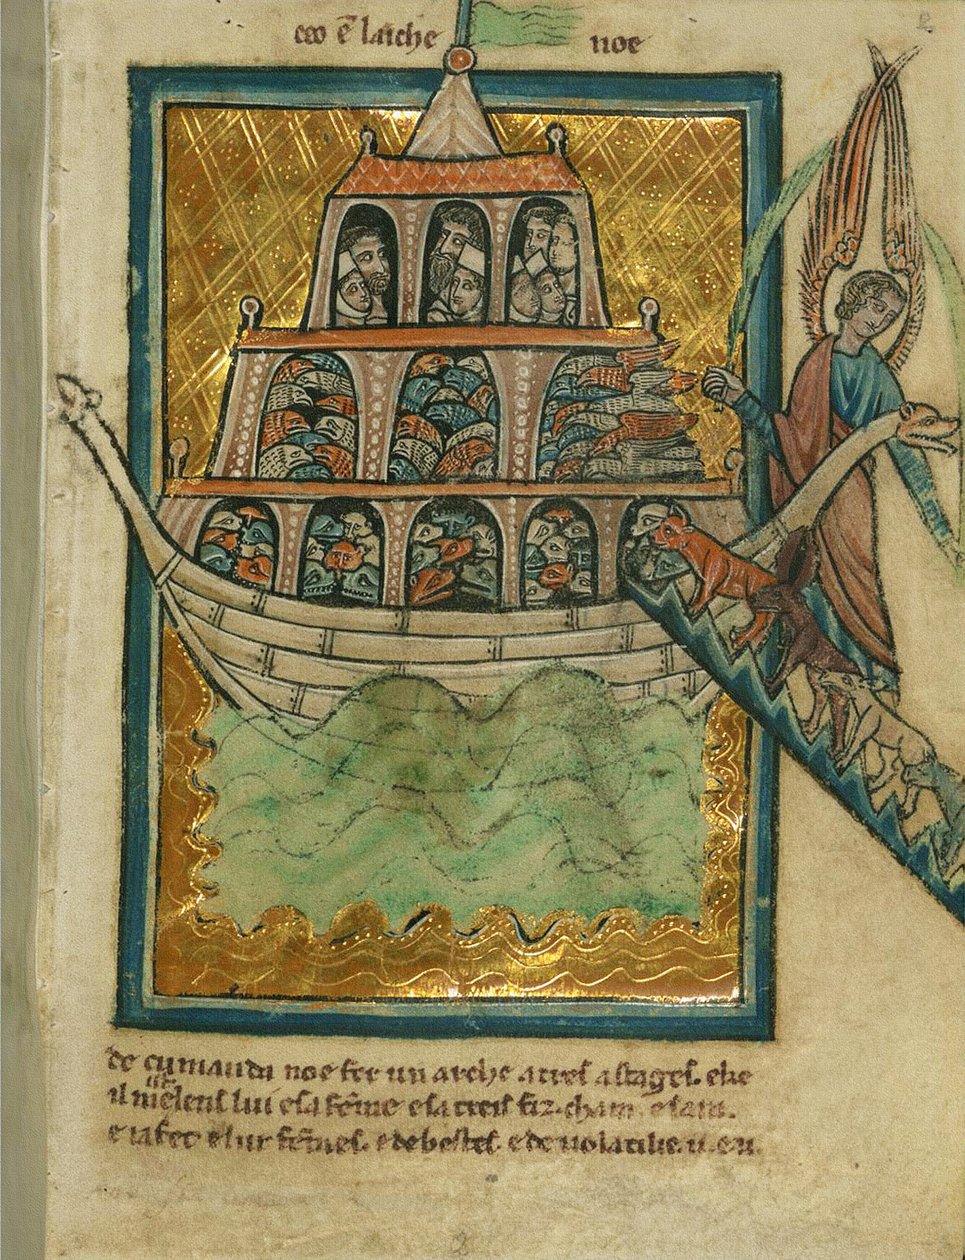 ceo ē laiche noe
de cumandu noe fer un arche a treſ aſtageſ. eke
il miſt enſ lui eſa fēme eſa treiſ fiz. cham. eſam.
e iafet e lur fēmeſ. e de beſteſ. e de uolatilie. u. eu.